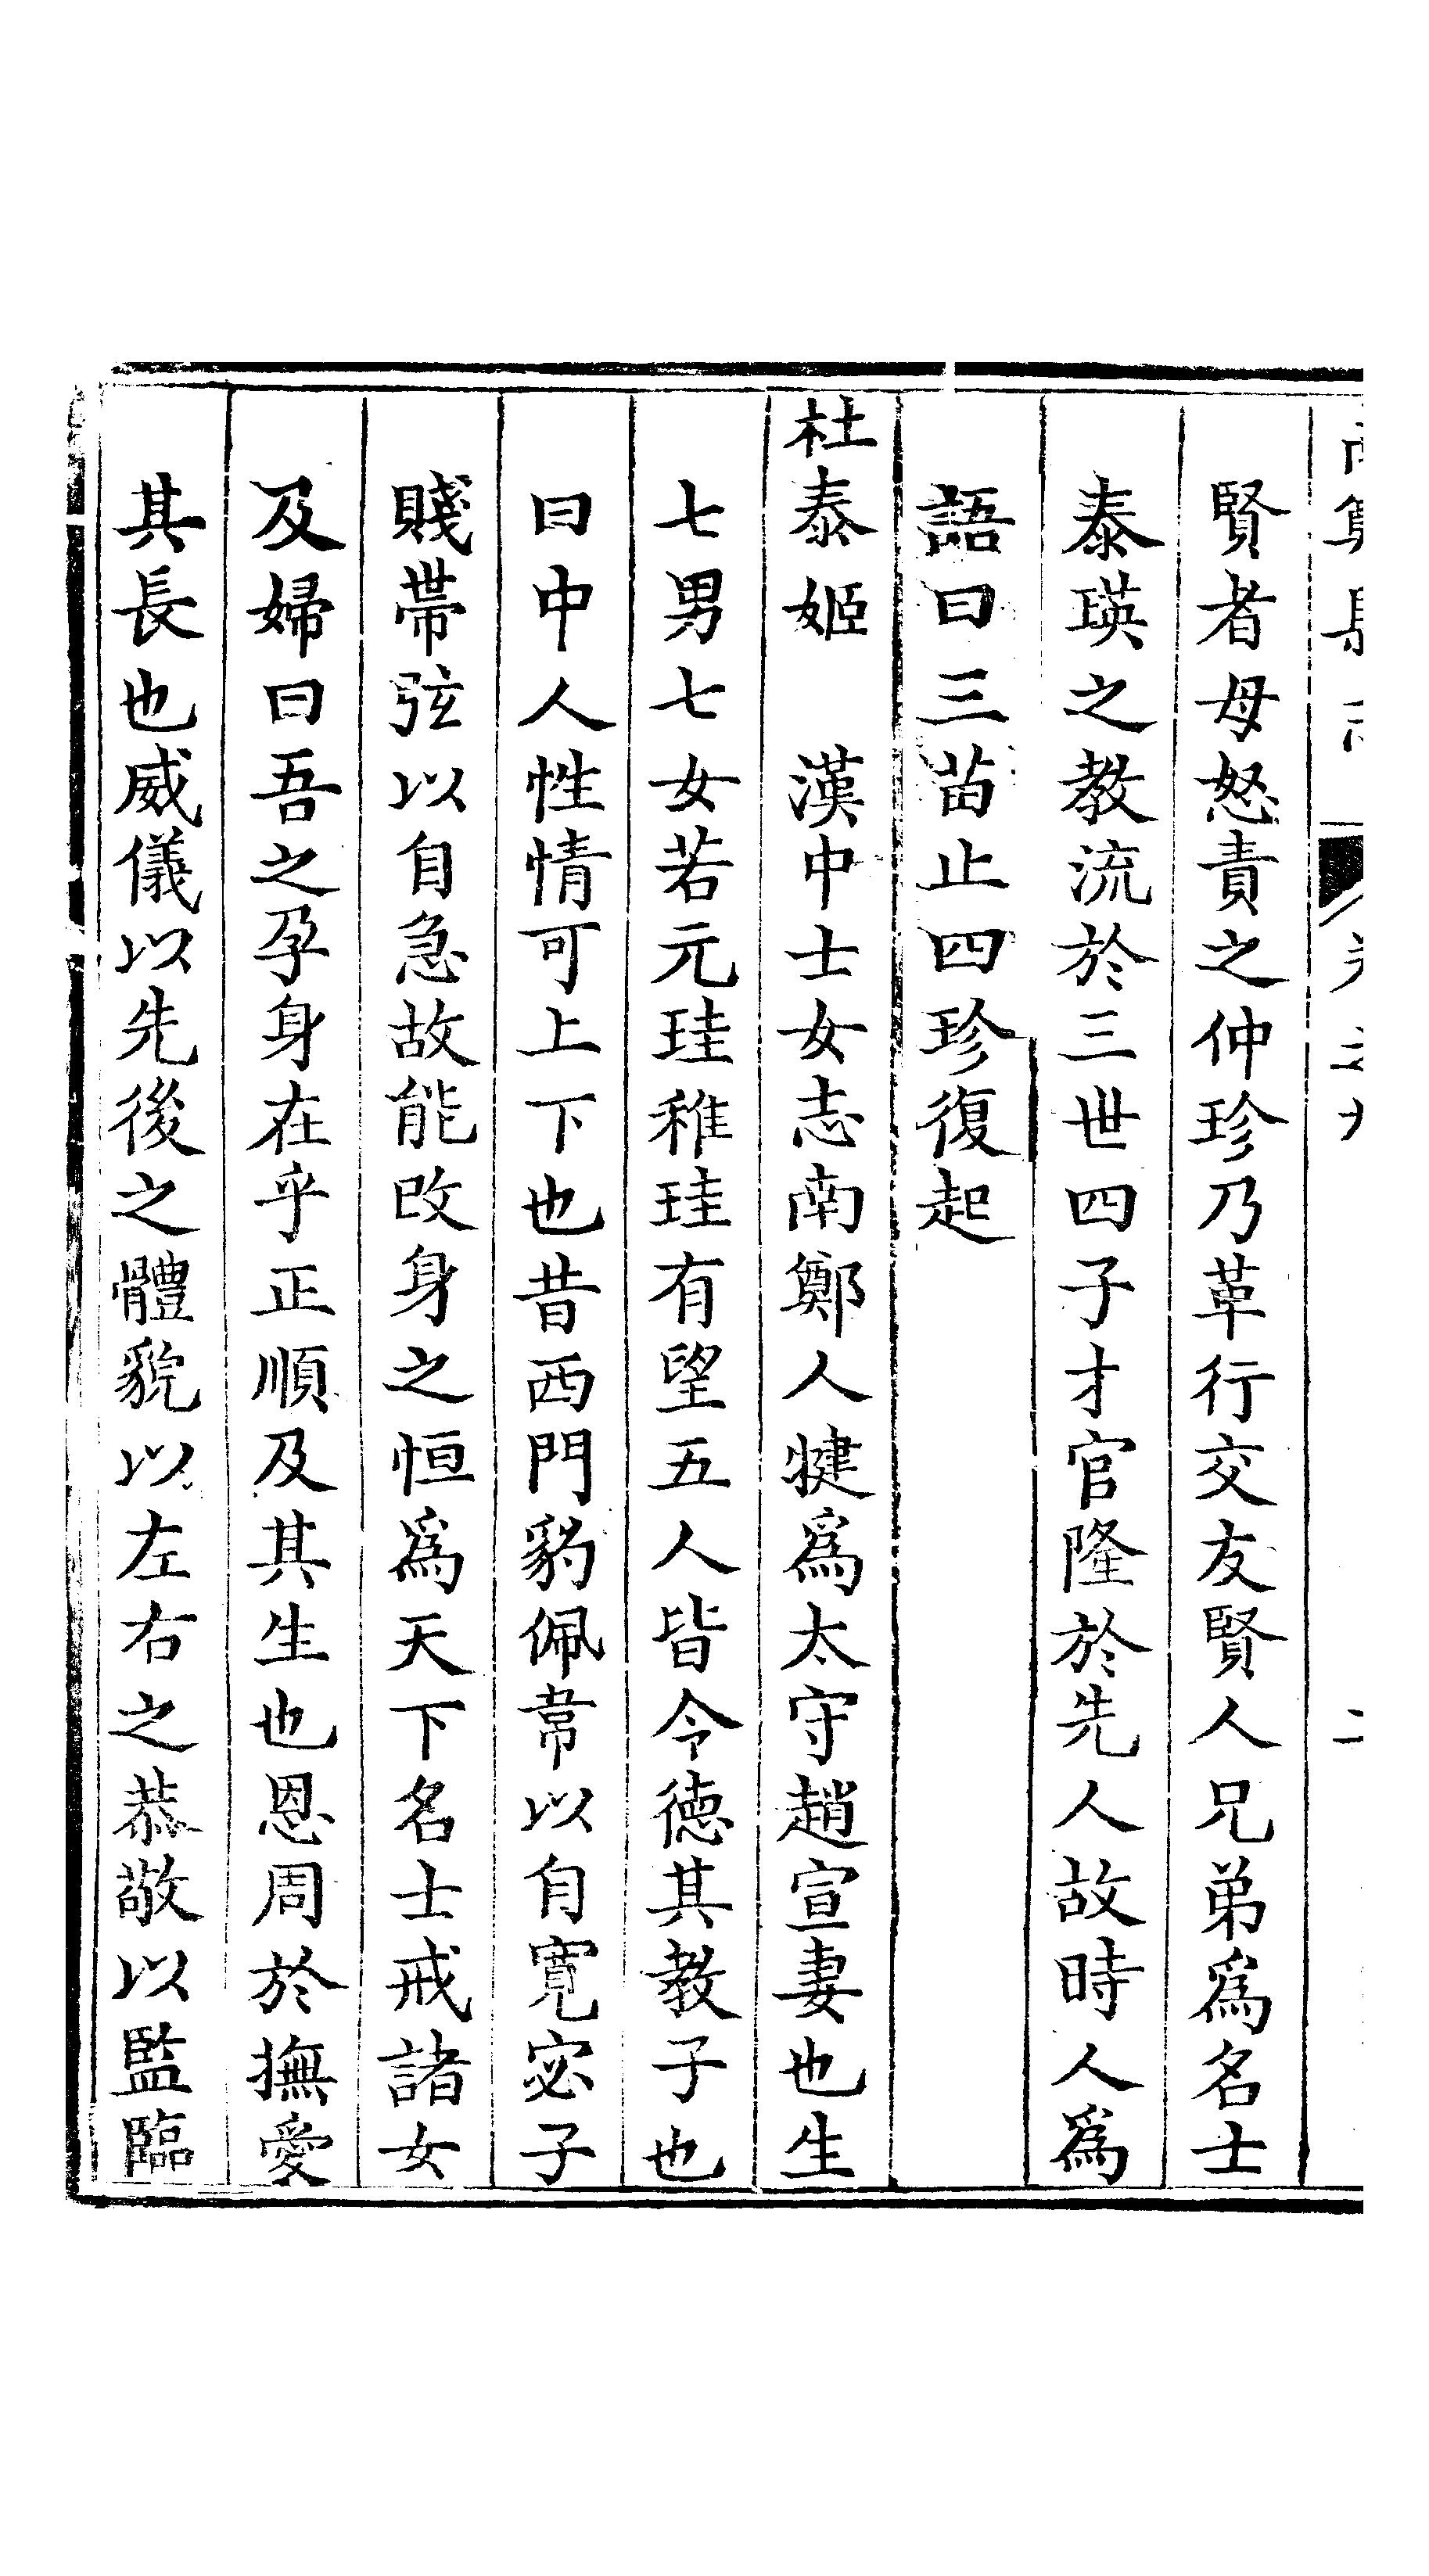 賢者母怒責之仲珍乃革行交友賢人兄弟爲名士
泰瑛之教流於三世四子才官隆於先人故時人爲
語曰三苗止四珍復起
杜泰姬　漢中士女志南鄭人犍爲太守趙宣妻也生
七男七女若元珪稚珪有望五人皆令德其教子也
曰中人性情可上下也昔西門豹佩韋以自寬宓子
賤帶弦以自急故能改身之恒爲天下名士戒諸女
及婦曰吾之孕身在乎正順及其生也恩周於撫愛
其長也威儀以先後之體貌以左右之恭敬以監臨